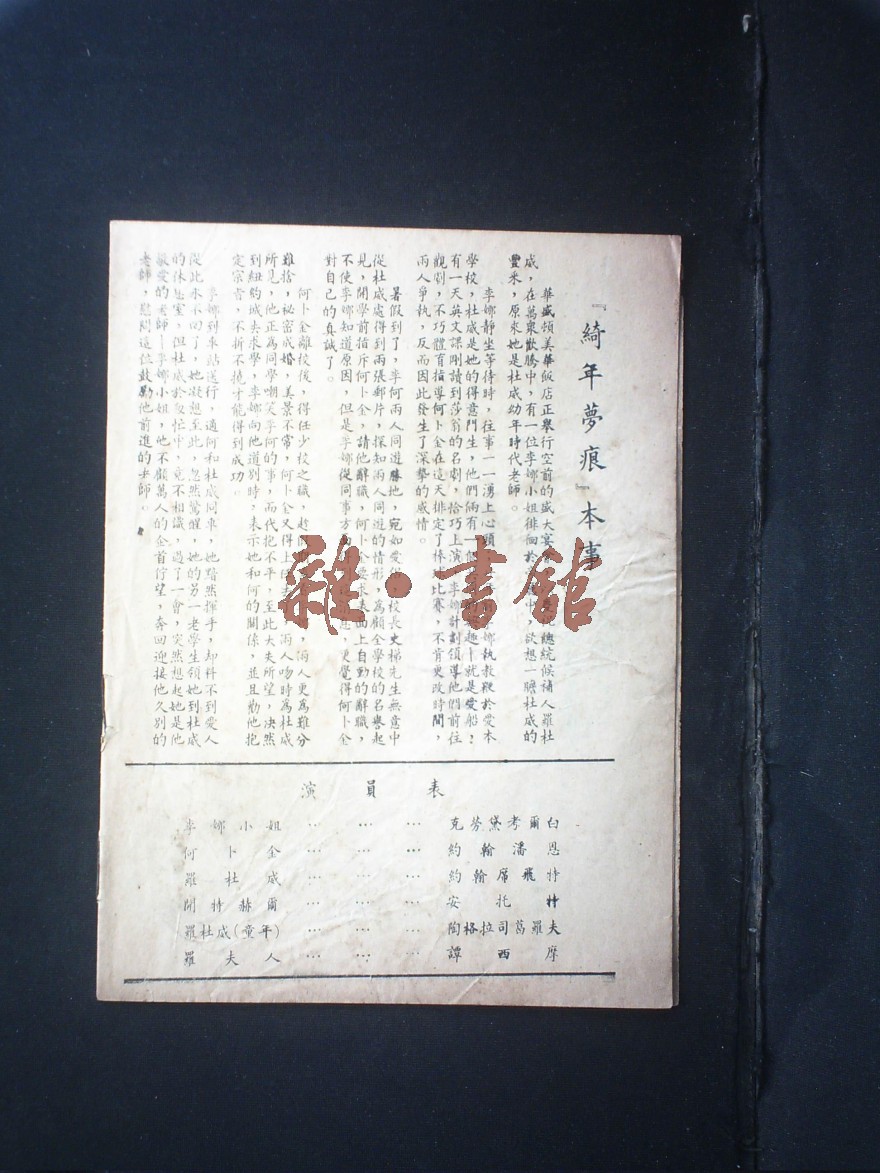 『綺年夢痕』本事
華盛頓美華飯店正舉行空前的盛大宴
總統候補人羅杜
威，在萬衆歡騰中，有一位李娜小姐徘徊於
中，欲想一瞻杜威的
豐釆，原來她是杜威幼年時代老師。
李娜靜坐等待時，往事一一湧上心頭
娜執教鞭於愛本
學校，杜威是她的得意門生，他們倆有一個
趣—就是愛船；
有一天英文課剛讀到莎翁的名劇，恰巧上演
李娜計劃領導他們前往
觀劇，不巧體育指導何卜金在這天排定了棒球比賽，不肯更改時間，
兩人爭執，反而因此發生了深摯的感情。
暑假到了，李何兩人同遊勝地，宛如愛侶
校長史梯先生無意中
從杜威處得到兩張郵片，探知兩人同遊的情形，爲顧全學校的名譽起
見，開學前指斥何卜金，請他辭職，何卜金要求表面上自動的辭職，
不使李娜知道原因，但是李娜從同事方面
更覺得何卜金
對自己的真誠了。
何卜金離校後，得任少校之職，趁
兩人更爲難分
難捨，秘密成婚，美景不常，何卜金又得上
兩人吻時爲杜威
所見，他正爲同學嘲笑李何的事，而代抱不平，至此大失所望，決然
到紐約城去求學，李娜向他道別時，表示她和何的關係，並且勸他抱
定宗旨，不折不撓才能得到成功。
李娜到車站送行，適何和杜威同車，她黯然揮手，却料不到愛人
從此永不回了，她凝想至此，忽然驚醒，她的另一老學生領她到杜威
的休息室，但杜威於匆忙中，竟不相識，過了一會，突然想起她是他
敬愛的老師—李娜小姐，他不顧萬人的企首佇望，奔回迎接他久別的
老師，慰問這位鼓勵他前進的老師。
雜·書館
演員表
李娜小姐 … … … 克勞黛考爾白
何卜金 … … … 約翰潘恩
羅杜威 … … … 約翰屈飛特
開特赫爾 … … … 安托特
羅杜威(童年) … … … 陶格拉司葛羅夫
羅夫人 … … … 譚西摩